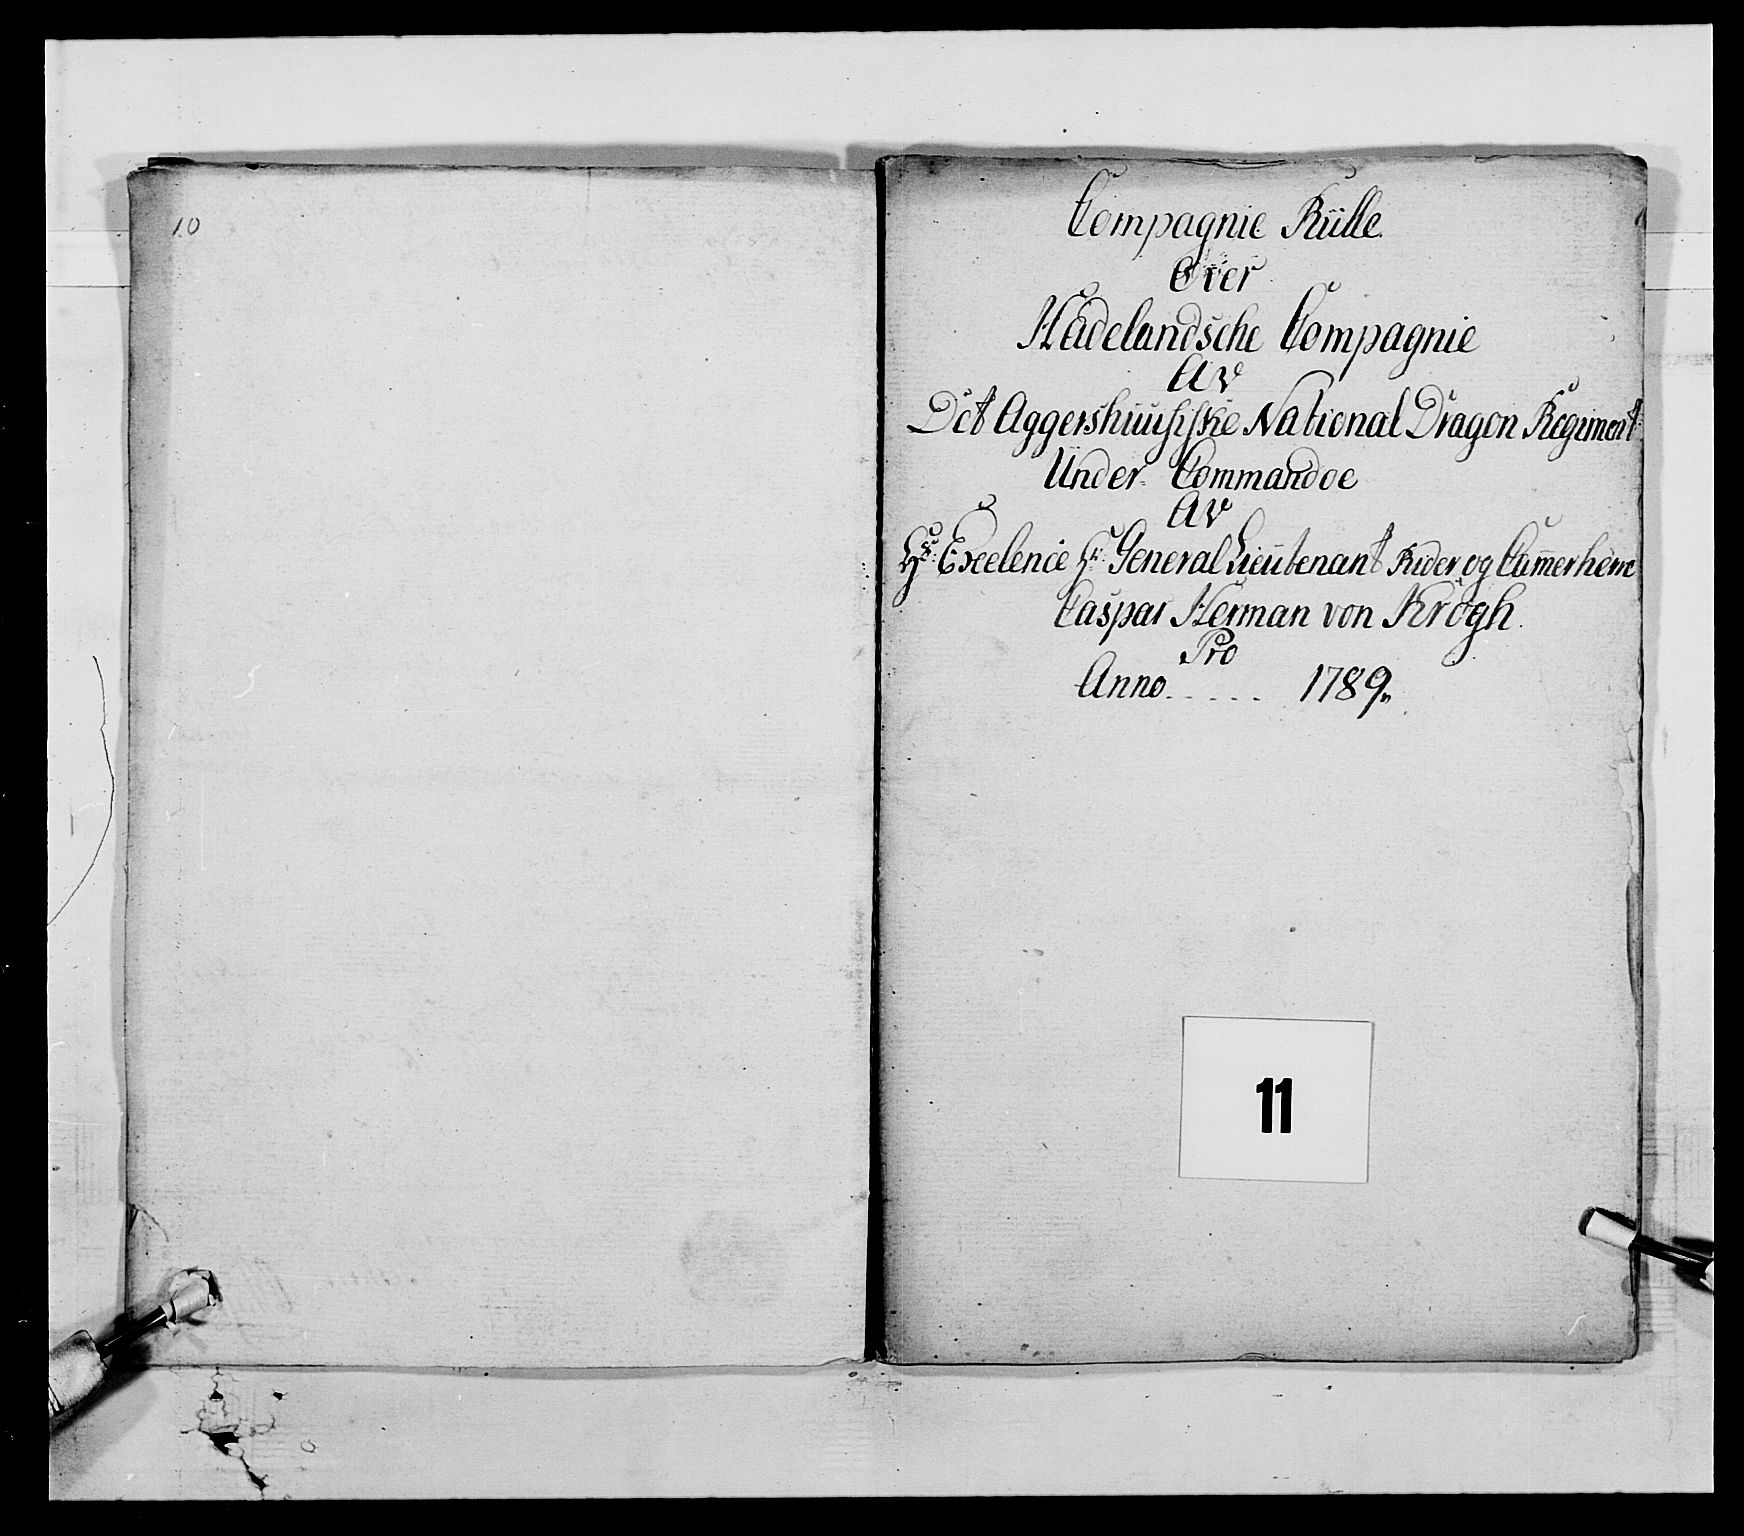 10
Compagnie Rülle
Over
Hadelandsche Compagnie
Av
Det Aggershuusiske National Dragon Regiment
Under Commandoe
Av
Hs: Excelence Hr: General Lieutenant Rider og Camerherre
Caspar Herman von Krogh.
Pro
Anno ..... 1789.
11